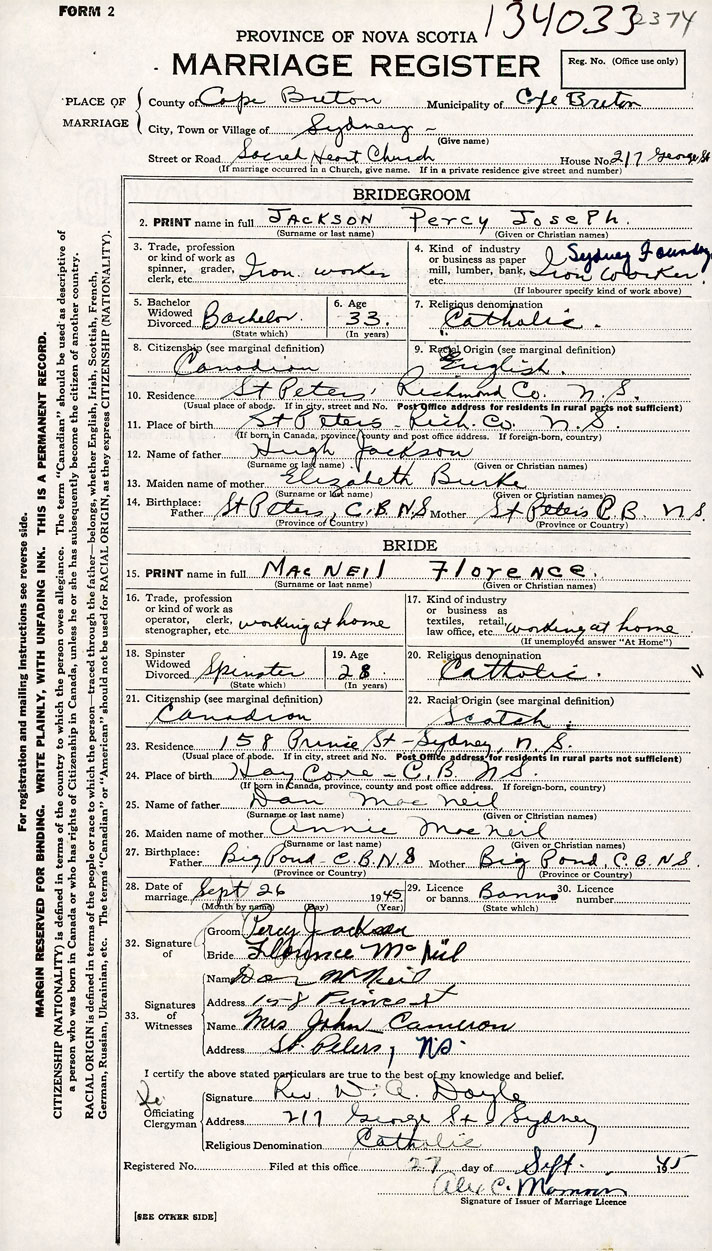 FORM 2
134033 2374
PROVINCE OF NOVA SCOTIA
MARRIAGE REGISTER
Reg. No. (Office use only)
PLACE OF MARRIAGE
County of Cape Breton Municipality of Cape Breton
City, Town or Village of Sydney -
(Give name)
Street or Road Sacred Heart Church House No. 217 George St
(If marriage occurred in a Church, give name. If in a private residence give street and number)
BRIDEGROOM
2. PRINT name in full JACKSON Percy Joseph.
(Surname or last name) (Given or Christian names)
3. Trade, profession or kind of work as spinner, grader, clerk, etc. Iron worker
4. Kind of industry or business as paper mill, lumber, bank, etc. Sydney Foundry Iron worker
(If labourer specify kind of work above)
5. Bachelor Widowed Divorced Bachelor
(State which)
6. Age 33.
(In years)
7. Religious denomination Catholic.
8. Citizenship (see marginal definition) Canadian
9. Racial Origin (see marginal definition) English.
10. Residence St Peters' Richmond Co. N.S.
(Usual place of abode. If in city, street and No. Post Office address for residents in rural parts not sufficient)
11. Place of birth St Peters - Rich. Co. N.S.
(If born in Canada, province, county and post office address. If foreign-born, country)
12. Name of father Hugh Jackson
(Surname or last name) (Given or Christian names)
13. Maiden name of mother Elizabeth Burke
(Surname or last name) (Given or Christian names)
14. Birthplace: Father St Peters, C.B. N.S Mother St Peters C.B. N.S.
(Province or Country) (Province or Country)
BRIDE
15. PRINT name in full MacNeil Florence.
(Surname or last name) (Given or Christian names)
16. Trade, profession or kind of work as operator, clerk, stenographer, etc. working at home
17. Kind of industry or business as textiles, retail, law office, etc. working at home
(If unemployed answer "At Home")
18. Spinster Widowed Divorced Spinster
(State which)
19. Age 28
(In years)
20. Religious denomination Catholic.
21. Citizenship (see marginal definition) Canadian
22. Racial Origin (see marginal definition) Scotch.
23. Residence 158 Prince St - Sydney, N.S.
(Usual place of abode. If in city, street and No. Post Office address for residents in rural parts not sufficient)
24. Place of birth Hay Cove - C.B. N.S.
(If born in Canada, province, county and post office address. If foreign-born, country)
25. Name of father Dan MacNeil
(Surname or last name) (Given or Christian names)
26. Maiden name of mother Annie MacNeil
(Surname or last name) (Given or Christian names)
27. Birthplace: Father Big Pond - C.B. N.S Mother Big Pond, C.B. N.S.
(Province or Country) (Province or Country)
28. Date of marriage Sept 26 1945
(Month by name) (Day) (Year)
29. Licence or banns Banns
(State which)
30. Licence number
32. Signature of
Groom Percy Jackson
Bride Florence McNeil
33. Signatures of Witnesses
Name Dan McNeil
Address 158 Prince St
Name Mrs John Cameron
Address St. Peters, N.S.
I certify the above stated particulars are true to the best of my knowledge and belief.
Officiating Clergyman
Signature Rev W. A. Doyle
Address 217 George St Sydney
Religious Denomination Catholic
Registered No. Filed at this office 27 day of Sept. 1945
Alex C.
Signature of Issuer of Marriage Licence
[SEE OTHER SIDE]
For registration and mailing instructions see reverse side.
MARGIN RESERVED FOR BINDING. WRITE PLAINLY, WITH UNFADING INK. THIS IS A PERMANENT RECORD.
CITIZENSHIP (NATIONALITY) is defined in terms of the country to which the person owes allegiance. The term "Canadian" should be used as descriptive of
a person who was born in Canada or who has rights of Citizenship in Canada, unless he or she has subsequently become the citizen of another country.
RACIAL ORIGIN is defined in terms of the people or race to which the person—traced through the father—belongs, whether English, Irish, Scottish, French,
German, Russian, Ukrainian, etc. The terms "Canadian" or "American" should not be used for RACIAL ORIGIN, as they express CITIZENSHIP (NATIONALITY).